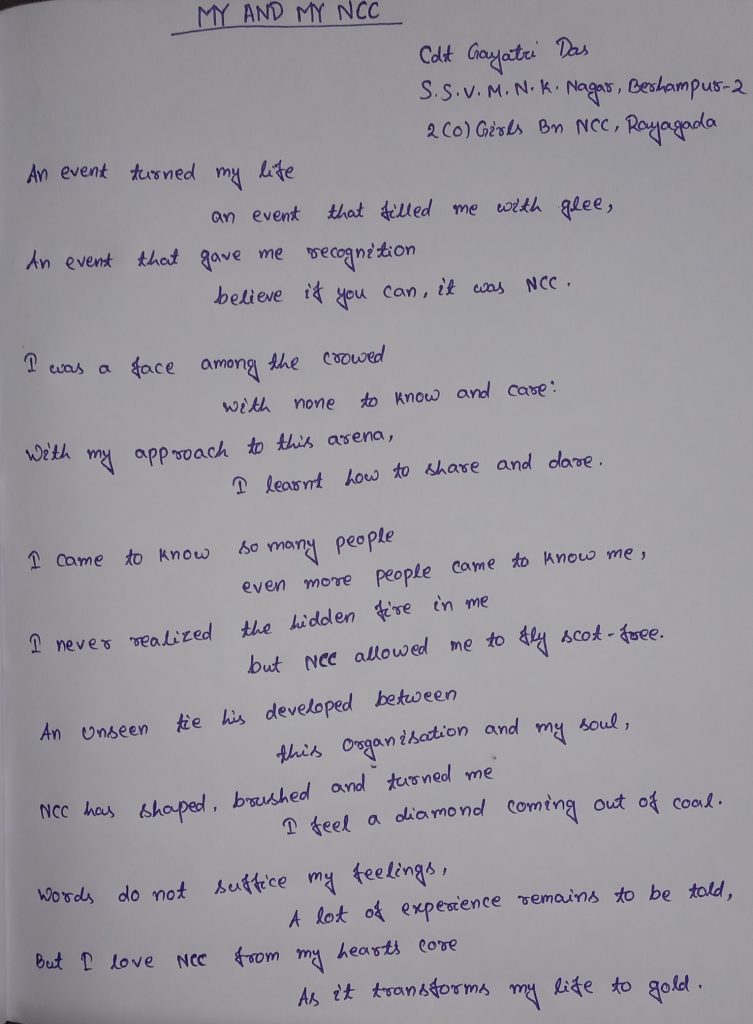 MY AND MY NCC
Cdt Gayatri Das
S.S.V.M.N.K. Nagar, Berhampur-2
2(O) Girls Bn NCC, Rayagada
An event turned my life
an event that filled me with glee,
An event that gave me recognition
believe if you can, it was NCC.
I was a face among the crowed
with none to know and care:
With my approach to this arena,
I learnt how to share and dare.
I came to know so many people
even more people came to know me,
I never realized the hidden fire in me
but NCC allowed me to fly scot-free.
An Unseen tie his developed between
this Organisation and my soul,
NCC has shaped, brushed and turned me
I feel a diamond coming out of coal.
Words do not suffice my feelings,
A lot of experience remains to be told,
But I love NCC from my hearts core
As it transforms my life to gold.